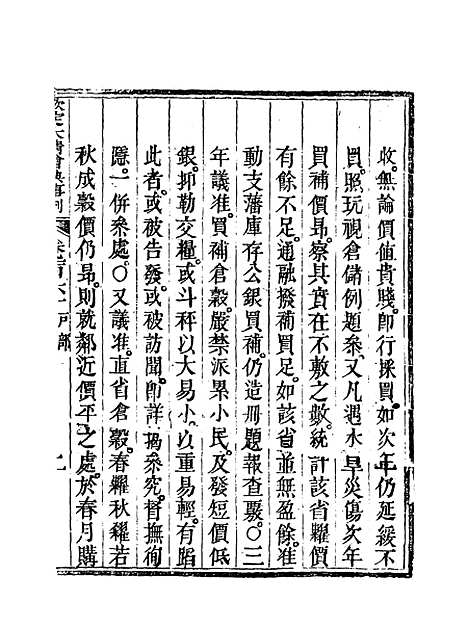 收。無論價值貴賤。卽行採買。如次年仍延緩不
買。照玩視倉儲例題參。又凡遇水旱災傷次年
買補價昂。察其實在不敷之數。統計該省糶價
有餘不足。通融撥補買足。如該省並無盈餘。准
動支藩庫存公銀買補。仍造冊題報查覈。〇三
年議准。買補倉穀。嚴禁派累小民。及發短價低
銀。抑勒交糧。或斗秤以大易小。以重易輕。有蹈
此者。或被告發。或被訪聞。卽詳揭參究。督撫徇
隱。一併參處。〇又議准。直省倉穀。春糶秋糴。若
秋成穀價仍昂。則就鄰近價平之處。於春月購
欽定大清會典事例 卷 戶部